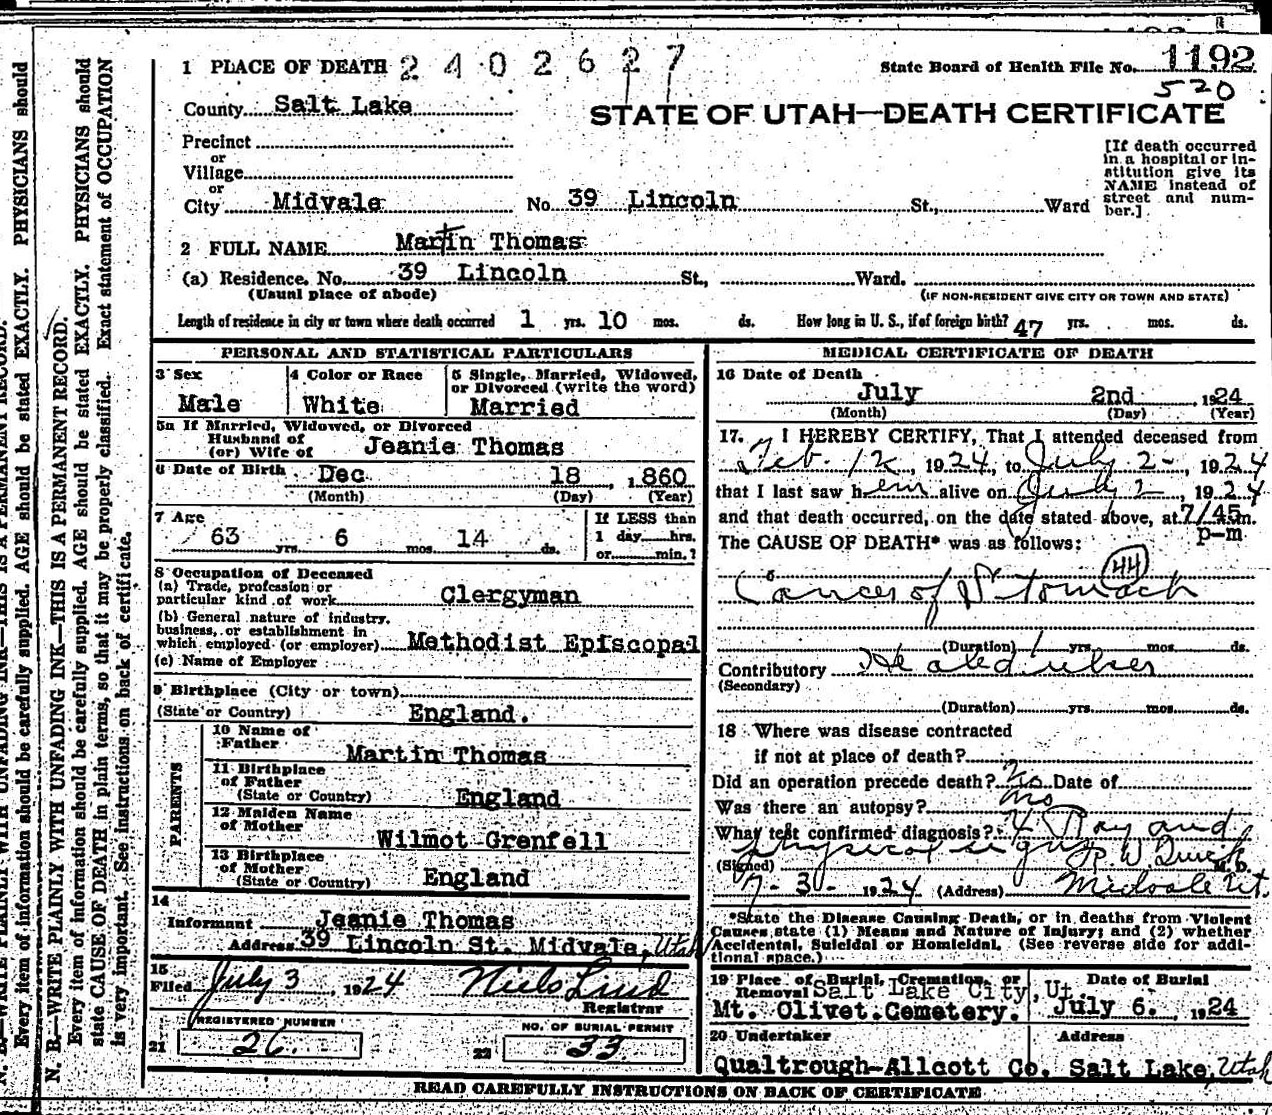 1 PLACE OF DEATH 2402627
State Board of Health File No. 1192
520
County Salt Lake
STATE OF UTAH—DEATH CERTIFICATE
Precinct
or
Village
or
City Midvale No. 39 Lincoln St., Ward
[If death occurred
in a hospital or in-
stitution give its
NAME instead of
street and num-
ber.]
2 FULL NAME Martin Thomas
(a) Residence. No. 39 Lincoln St., Ward.
(Usual place of abode) (IF NON-RESIDENT GIVE CITY OR TOWN AND STATE)
Length of residence in city or town where death occurred 1 yrs. 10 mos. ds. How long in U. S., if of foreign birth? 47 yrs. mos. ds.
PERSONAL AND STATISTICAL PARTICULARS
3 Sex
Male
4 Color or Race
White
5 Single, Married, Widowed,
or Divorced (write the word)
Married
5a If Married, Widowed, or Divorced
Husband of
(or) Wife of Jeanie Thomas
6 Date of Birth Dec 18, 1860
(Month) (Day) (Year)
7 Age
63 yrs. 6 mos. 14 ds.
If LESS than
1 day hrs.
or min.?
8 Occupation of Deceased
(a) Trade, profession or
particular kind of work Clergyman
(b) General nature of industry,
business, or establishment in
which employed (or employer) Methodist Episcopal
(c) Name of Employer
9 Birthplace (City or town)
(State or Country) England.
PARENTS
10 Name of
Father Martin Thomas
11 Birthplace
of Father
(State or Country) England
12 Maiden Name
of Mother Wilmot Grenfell
13 Birthplace
of Mother
(State or Country) England
14
Informant Jeanie Thomas
Address 39 Lincoln St. Midvale, Utah
15
Filed July 3 1924 Niels Lind
Registrar
REGISTERED NUMBER
21 26.
NO. OF BURIAL PERMIT
22 33
MEDICAL CERTIFICATE OF DEATH
16 Date of Death
July 2nd, 1924
(Month) (Day) (Year)
17. I HEREBY CERTIFY, That I attended deceased from
Feb. 12, 1924, to July 2-, 1924
that I last saw hem alive on July 2, 1924
and that death occurred, on the date stated above, at 7/45 m.
p-m
The CAUSE OF DEATH* was as follows:
44
Cancer of Stomach
(Duration) 1 yrs. mos. ds.
Contributory Healed ulcer
(Secondary)
(Duration) yrs. mos. ds.
18 Where was disease contracted
if not at place of death?
Did an operation precede death? No Date of
Was there an autopsy? No
What test confirmed diagnosis? X Ray and
physical signs
(Signed) R. W. M. D.
7-3-1924 (Address) Midvale Ut.
*State the Disease Causing Death, or in deaths from Violent
Causes, state (1) Means and Nature of Injury; and (2) whether
Accidental, Suicidal or Homicidal. (See reverse side for addi-
tional space.)
19 Place of Burial, Cremation, or
Removal Salt Lake City, Ut.
Mt. Olivet Cemetery.
Date of Burial
July 6, 1924
20 Undertaker Address
Qualtrough-Allcott Co. Salt Lake, Utah
READ CAREFULLY INSTRUCTIONS ON BACK OF CERTIFICATE
N. B.—WRITE PLAINLY WITH UNFADING INK—THIS IS A PERMANENT RECORD.
Every item of information should be carefully supplied. AGE should be stated EXACTLY. PHYSICIANS should
state CAUSE OF DEATH in plain terms, so that it may be properly classified. Exact statement of OCCUPATION
is very important. See instructions on back of certificate.
N. B.—WRITE PLAINLY WITH UNFADING INK—THIS IS A PERMANENT RECORD.
Every item of information should be carefully supplied. AGE should be stated EXACTLY. PHYSICIANS should